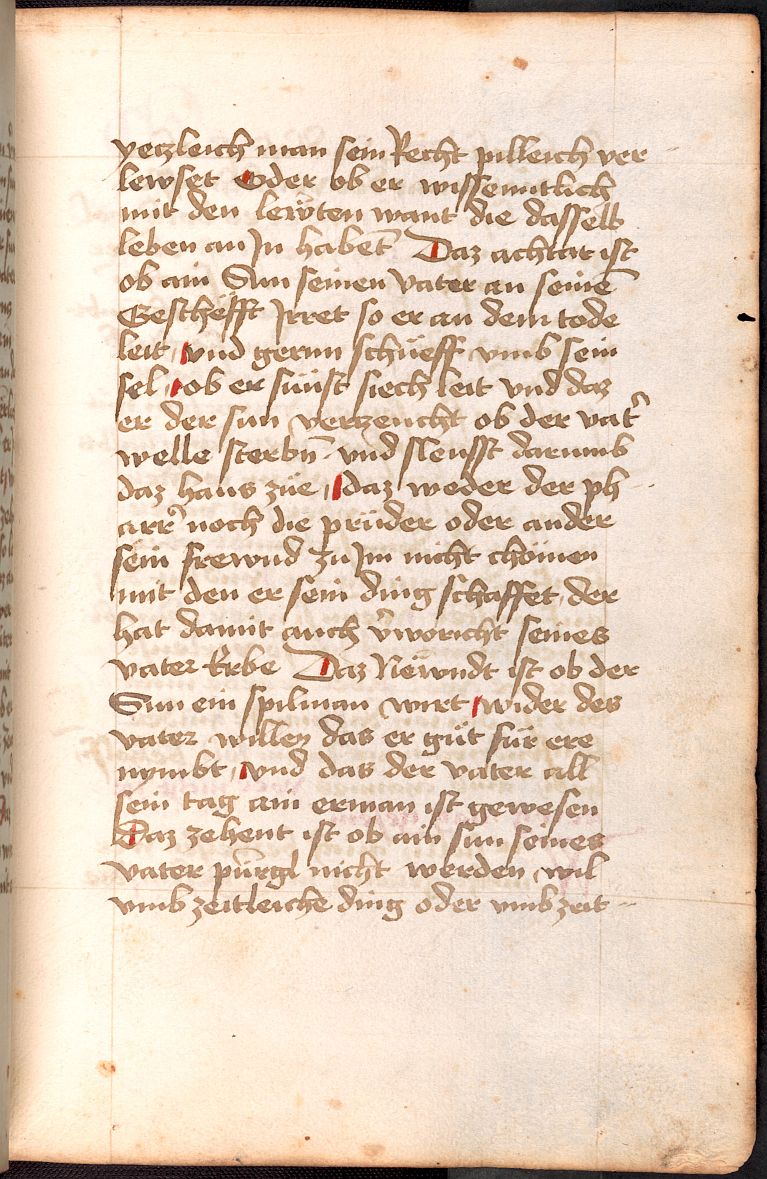 yetzleich man sein Recht pilleich ver
lewset Oder ob er wissenntlich
mit den lewten want die dasselb
leben an In habent Daz achtat ist
ob ain Sun seinen Vater an seinē
Geschefft Irret so er an dem tode
leit vnd gernn schüeff vmb sein
sel ob er sünst siech leit vnd daz
er der sun verzeucht ob der vat͛
welle sterbn̄ vnd sleusst darumb
daz haus züe daz weder der ph
arr͛ noch die prüder oder ander
sein frewnd zu Im nicht chömen
mit den er sein ding schaffet der
hat damit auch v͛woricht seines
vater Erbe Daz Newndt ist ob der
Sun ein spilman wirt wider des
vater willen das er güt für ere
nymbt vnd das der vater all
sein tag ain erman ist gewesen
Daz zehent ist ob ain sun seines
vater pürgl nicht werden wil
vmb zeitleiche ding oder vmb zeit